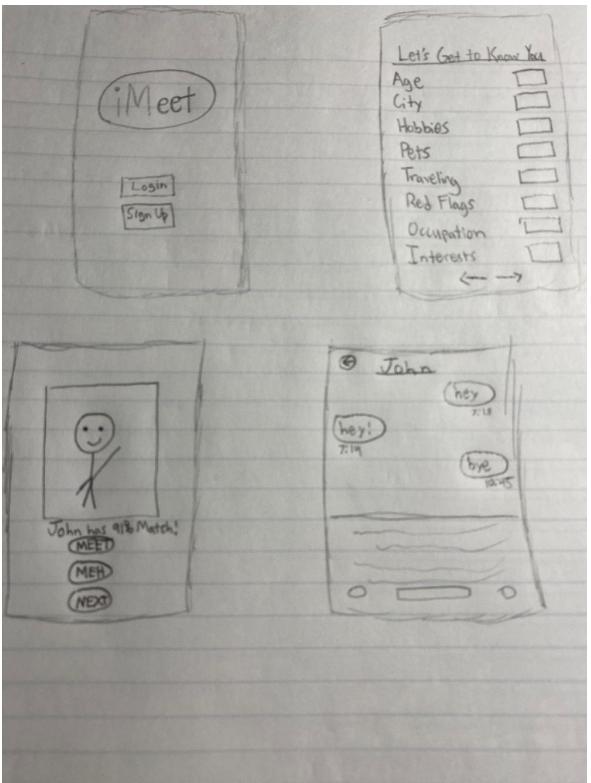 iMeet
Login
Sign Up
Let's Get to Know You
Age
City
Hobbies
Pets
Traveling
Red Flags
Occupation
Interests
John has 91% Match!
MEET
MEH
NEXT
John
hey
7:18
hey!
7:19
bye
10:45